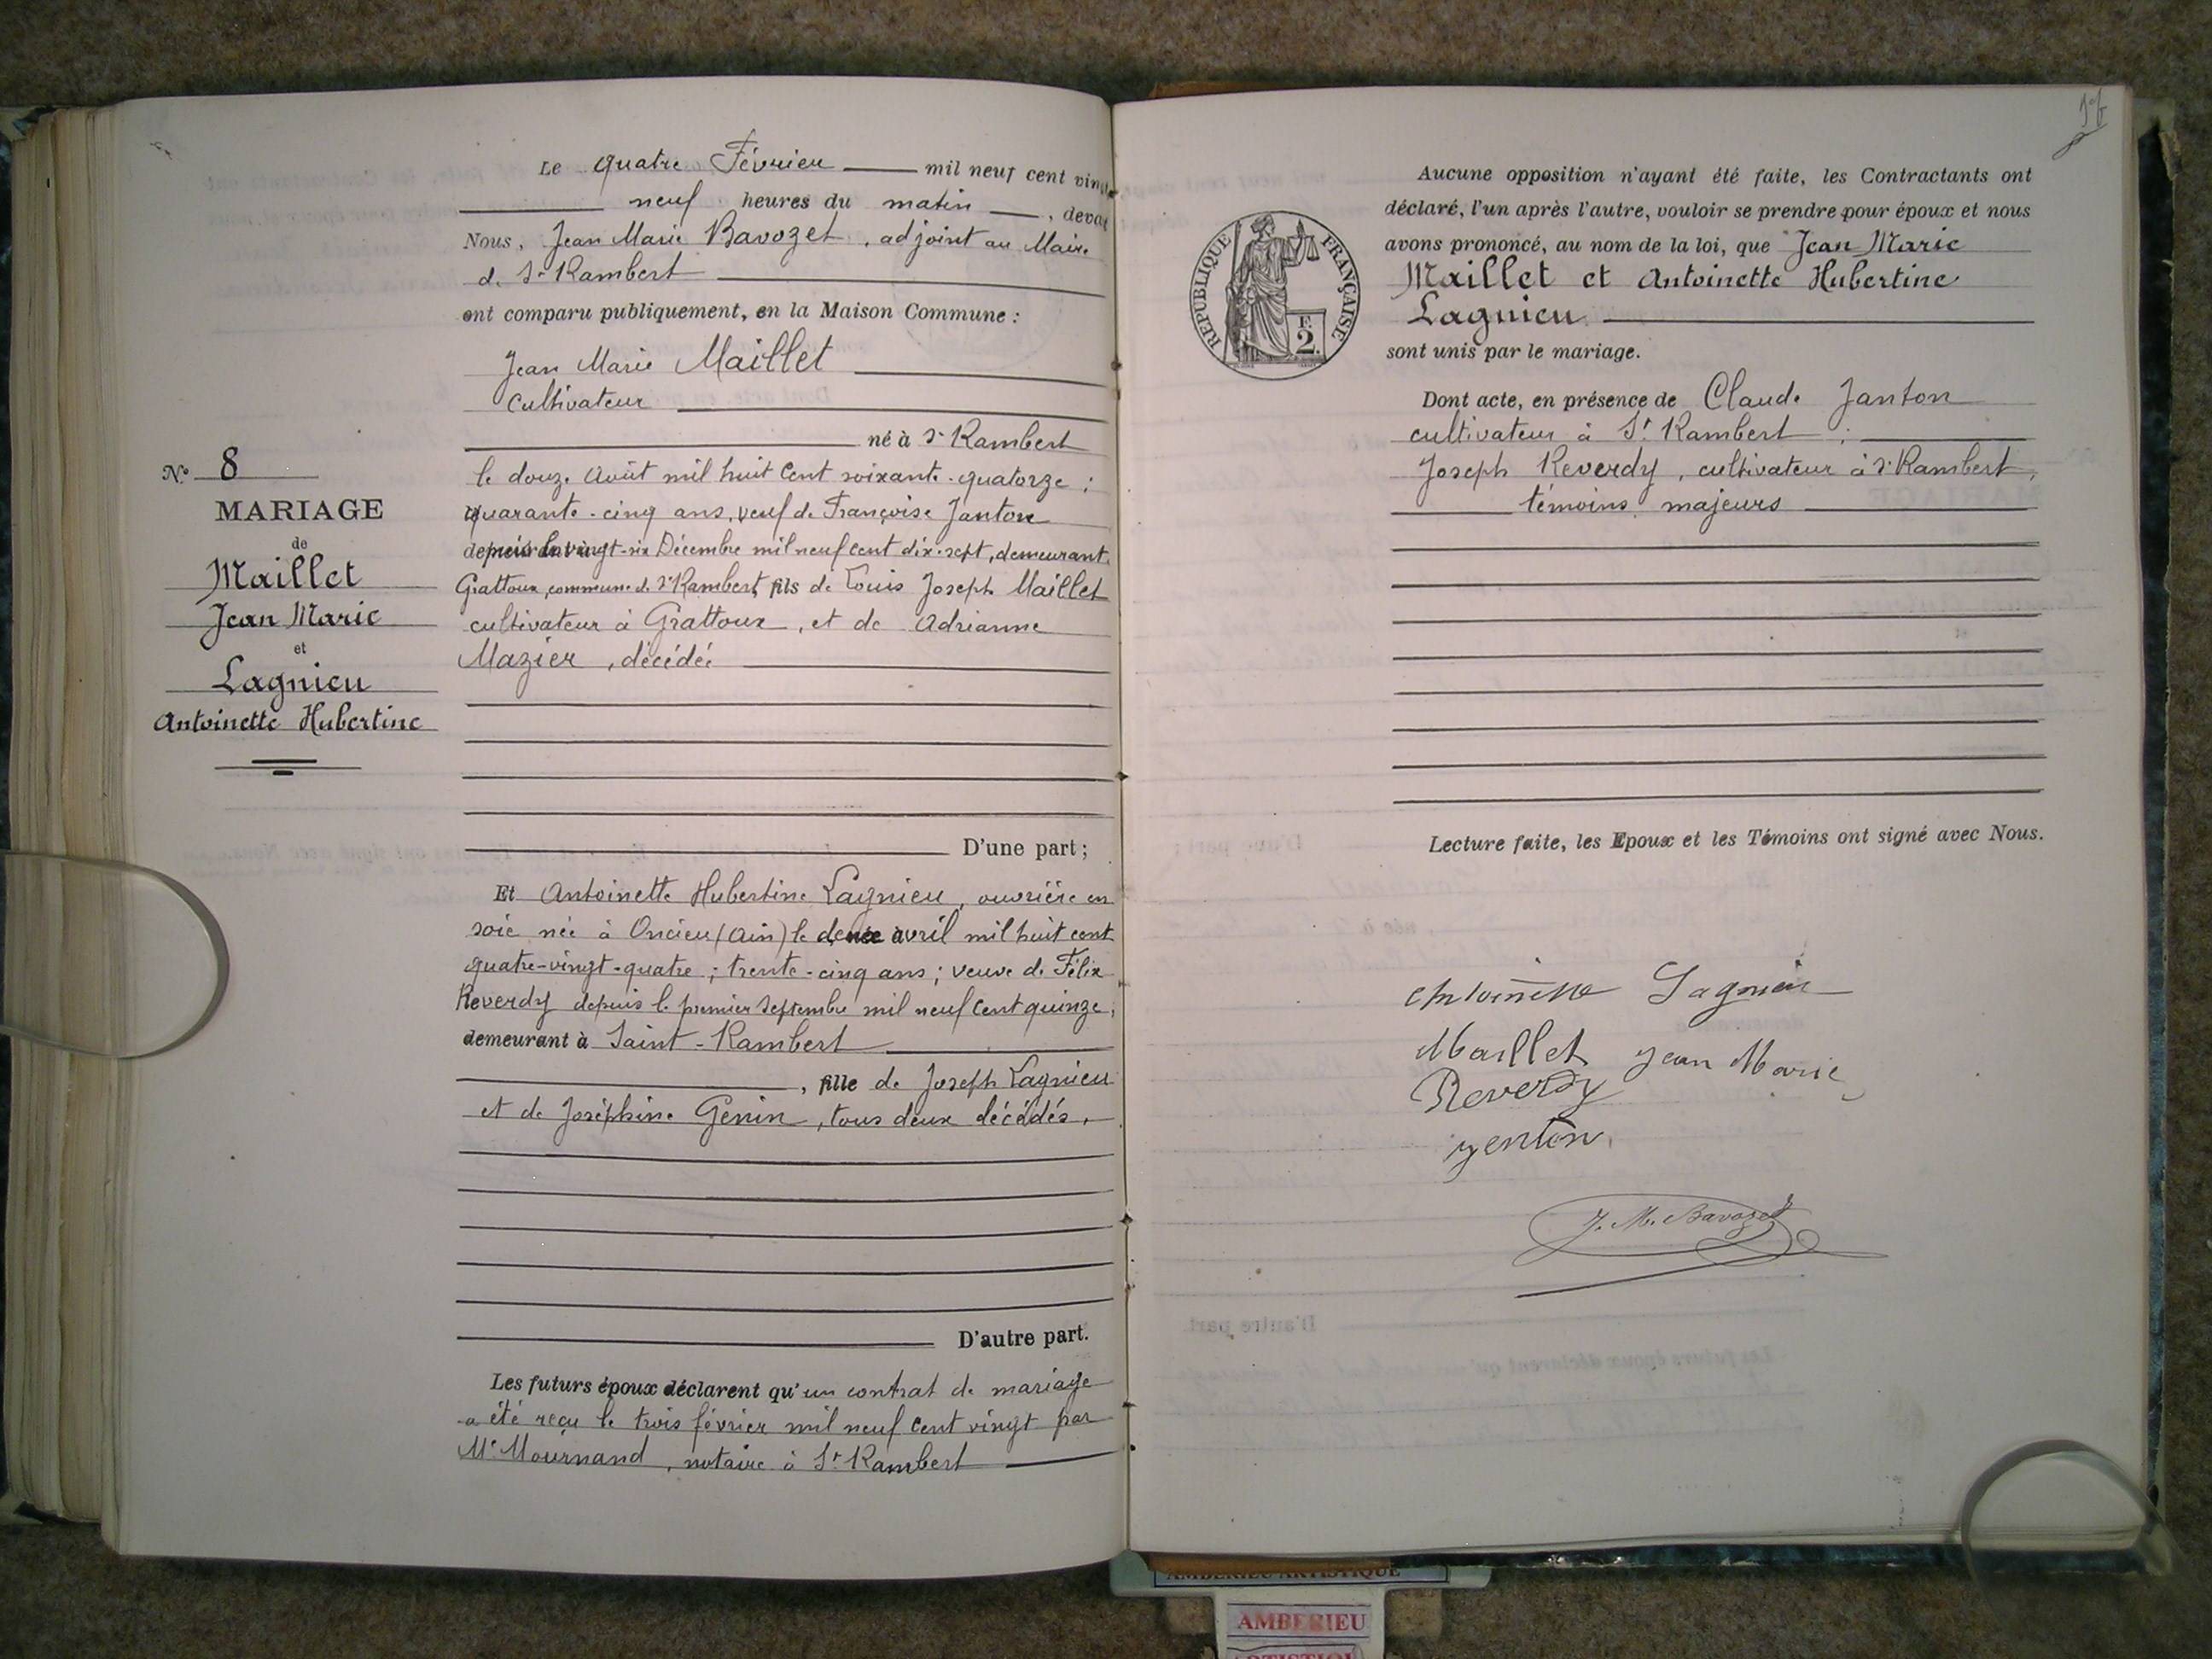 Le quatre Février mil neuf cent vingt
neuf heures du matin, devant
Nous, Jean Marie Bavozet, adjoint au Maire
de St Rambert
ont comparu publiquement, en la Maison Commune :
Jean Marie Maillet
cultivateur
né à St Rambert
le douze Août mil huit cent soixante-quatorze ;
quarante-cinq ans, veuf de Françoise Janton
depuis le vingt-six Décembre mil neuf cent dix-sept, demeurant
Grattoux, commune de St Rambert, fils de Louis Joseph Maillet
cultivateur à Grattoux, et de Adrianne
Mazier, décédée
N° 8
MARIAGE
de
Maillet
Jean Marie
et
Lagnieu
Antoinette Hubertine
D'une part ;
Et Antoinette Hubertine Lagnieu, ouvrière en
soie née à Oncieu (Ain) le avril mil huit cent
quatre-vingt-quatre ; trente-cinq ans ; veuve de Félix
Reverdy depuis le premier Septembre mil neuf cent quinze,
demeurant à Saint-Rambert
, fille de Joseph Lagnieu
et de Joséphine Genin, tous deux décédés.
D'autre part.
Les futurs époux déclarent qu'un contrat de mariage
a été reçu le trois février mil neuf cent vingt par
Me Mournand, notaire à St Rambert
Aucune opposition n'ayant été faite, les Contractants ont
déclaré, l'un après l'autre, vouloir se prendre pour époux et nous
avons prononcé, au nom de la loi, que Jean Marie
Maillet et Antoinette Hubertine
Lagnieu
sont unis par le mariage.
REPUBLIQUE FRANÇAISE
F.
2.
Dont acte, en présence de Claude Janton
cultivateur à St Rambert ;
Joseph Reverdy, cultivateur à St Rambert,
témoins majeurs
Lecture faite, les Epoux et les Témoins ont signé avec Nous.
Antoinette Lagnieu
Maillet Jean Marie
Reverdy
Jenton
J. M. Bavozet
AMBERIEU ARTISTIQUE
AMBERIEU